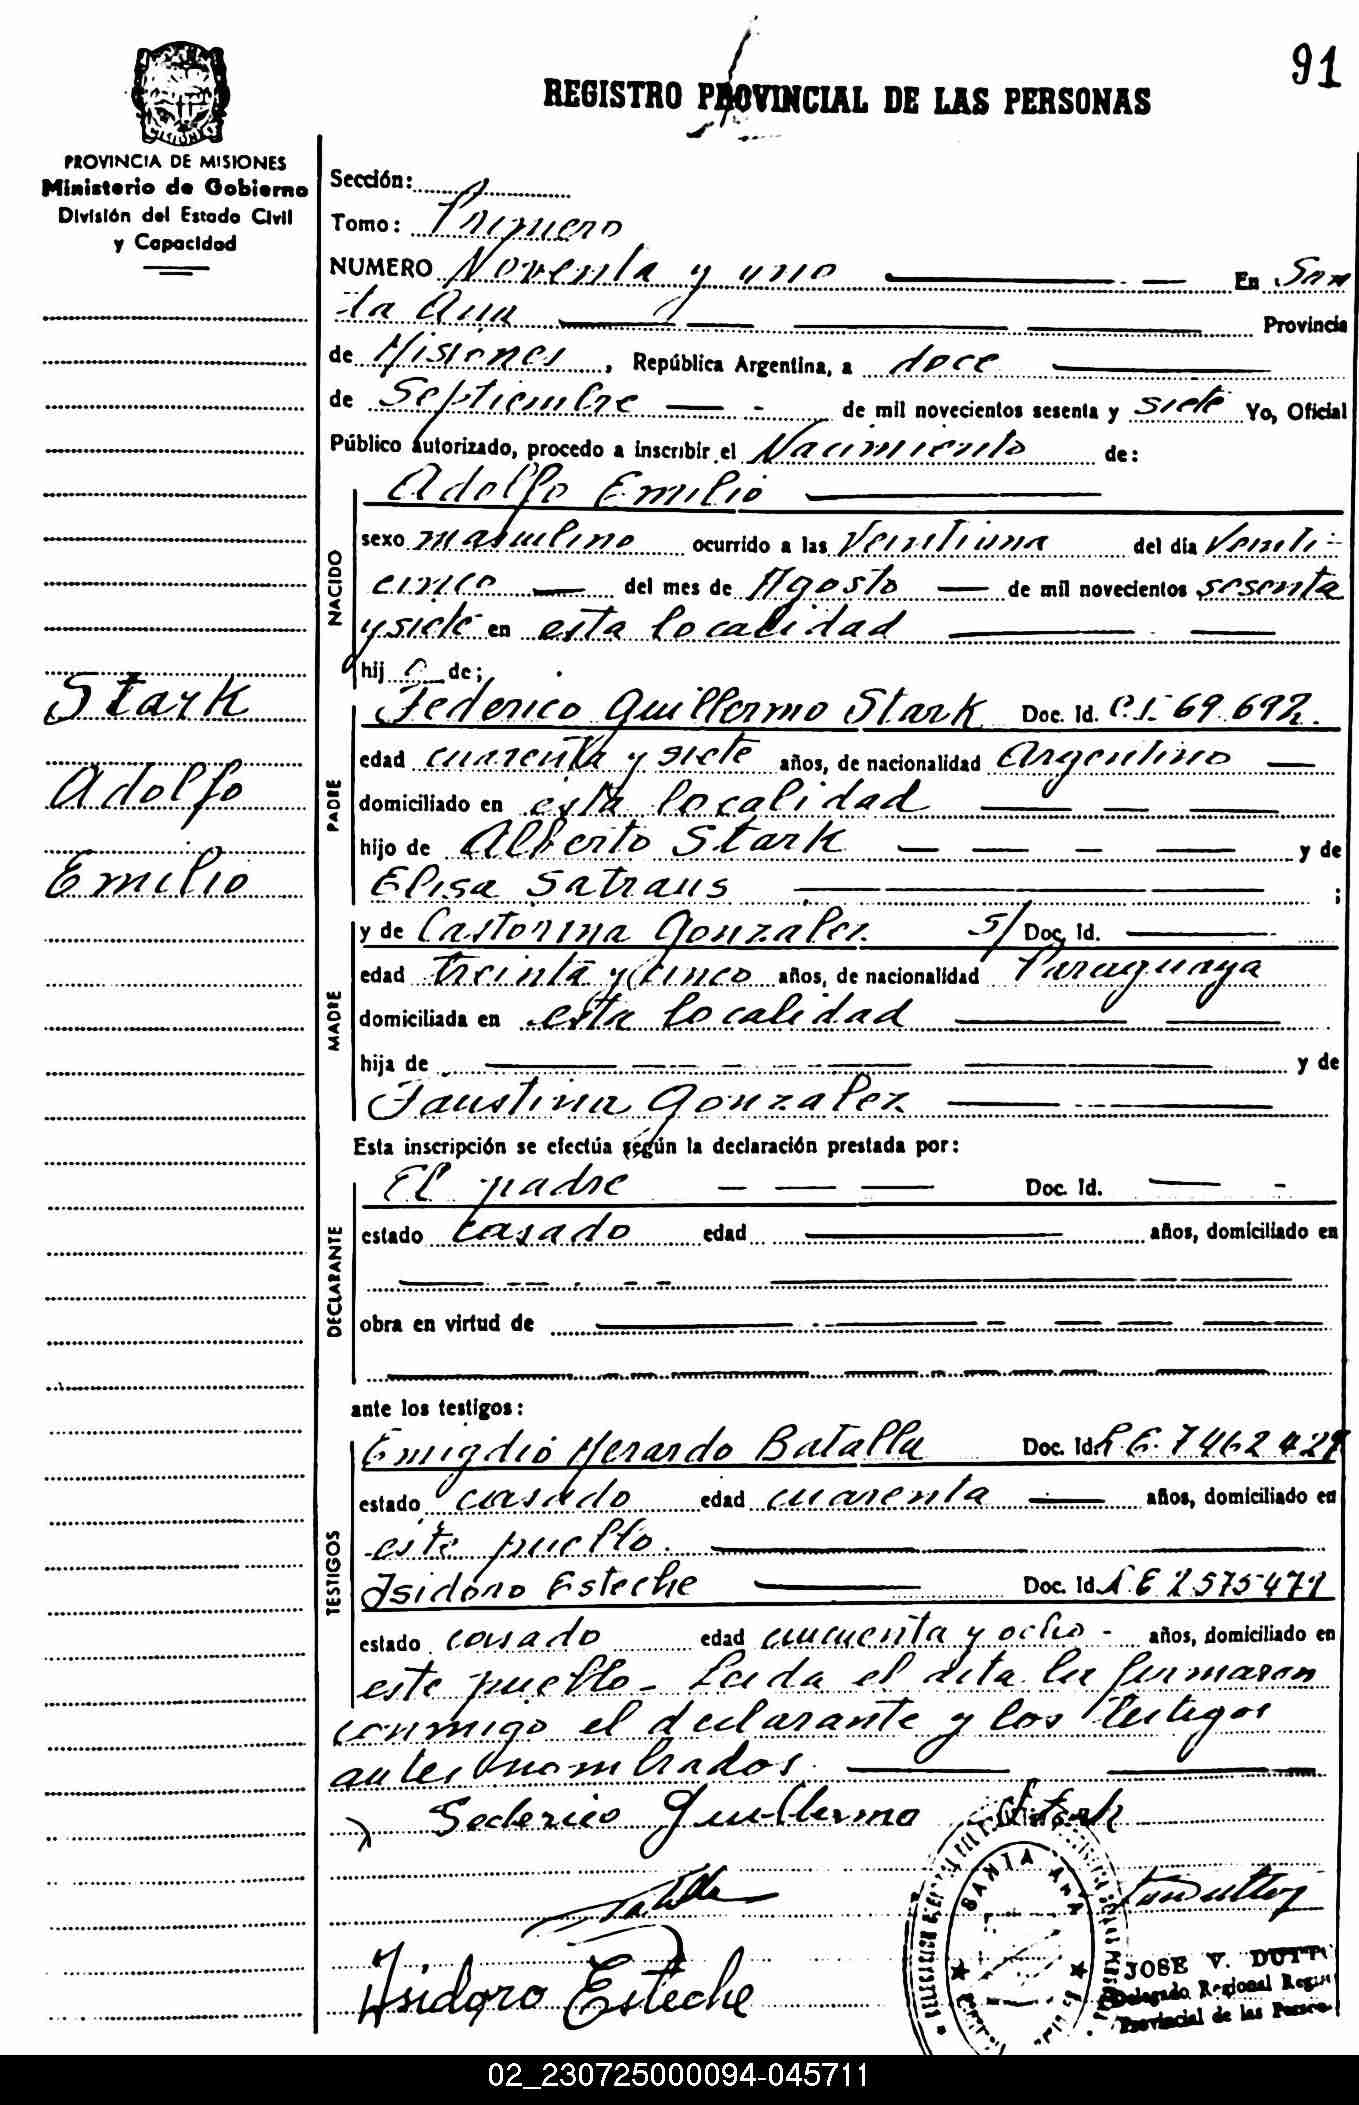 91
REGISTRO PROVINCIAL DE LAS PERSONAS
PROVINCIA DE MISIONES
Ministerio de Gobierno
División del Estado Civil
y Capacidad
Stark
Adolfo
Emilio
Sección:
Tomo: Primero
NUMERO Noventa y uno En San
ta Ana Provincia
de Misiones, República Argentina, a doce
de Septiembre de mil novecientos sesenta y siete Yo, Oficial
Público autorizado, procedo a inscribir el Nacimiento de:
NACIDO
Adolfo Emilio
sexo masculino ocurrido a las Veintiuna del día Veinti-
cinco del mes de Agosto de mil novecientos sesenta
y siete en esta localidad
hijo de;
PADRE
Federico Guillermo Stark Doc. Id. C.I. 69.692.
edad cuarenta y siete años, de nacionalidad Argentino
domiciliado en esta localidad
hijo de Alberto Stark y de
Elisa Satraus ;
MADRE
y de Castorina Gonzalez S/ Doc. Id.
edad treinta y cinco años, de nacionalidad Paraguaya
domiciliada en esta localidad
hija de y de
Faustina Gonzalez
Esta inscripción se efectúa según la declaración prestada por:
DECLARANTE
El padre Doc. Id.
estado casado edad años, domiciliado en
obra en virtud de
ante los testigos:
TESTIGOS
Emigdio Gerardo Batalla Doc. Id. L.E. 7462429
estado casado edad cuarenta años, domiciliado en
este pueblo.
Isidoro Esteche Doc. Id. L.E 2575471
estado casado edad cincuenta y ocho - años, domiciliado en
este pueblo - Leida el acta la firmaron
conmigo el declarante y los testigos
antes nombrados.
Federico Guillermo Stark
Isidoro Esteche
SANTA ANA
JOSE V. DUTTO
Delegado Regional Regis
Provincial de las Person
02_230725000094-045711